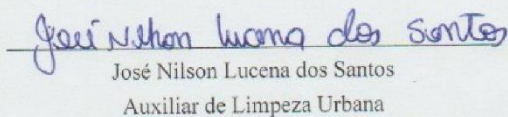 José Nilson Lucena dos Santos
José Nilson Lucena dos Santos
Auxiliar de Limpeza Urbana